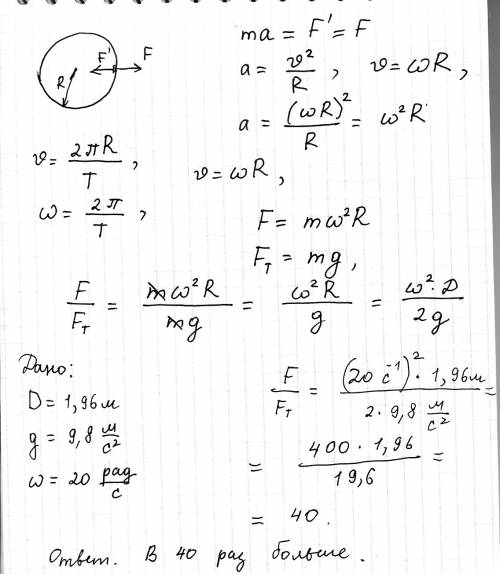 ma = F' = F
R F' F
a = v²/R , v = ωR ,
a = (ωR)²/R = ω²R
v = 2πR/T , v = ωR ,
ω = 2π/T , F = mω²R
Fт = mg ,
F/Fт = mω²R/mg = ω²R/g = ω²·D/2g
Дано:
D = 1,96 м
g = 9,8 м/с²
ω = 20 рад/с
F/Fт = (20 с⁻¹)² · 1,96м / 2 · 9,8 м/с² =
= 400 · 1,96 / 19,6 =
= 40.
Ответ. В 40 раз больше.